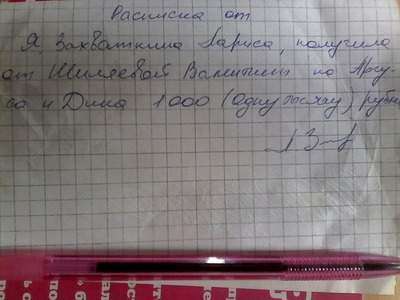 Расписка от
Я, Захваткина Лариса, получила
от Шиляевой Валентины на Аргу-
са и Дика 1000 (одну тысячу) рубл